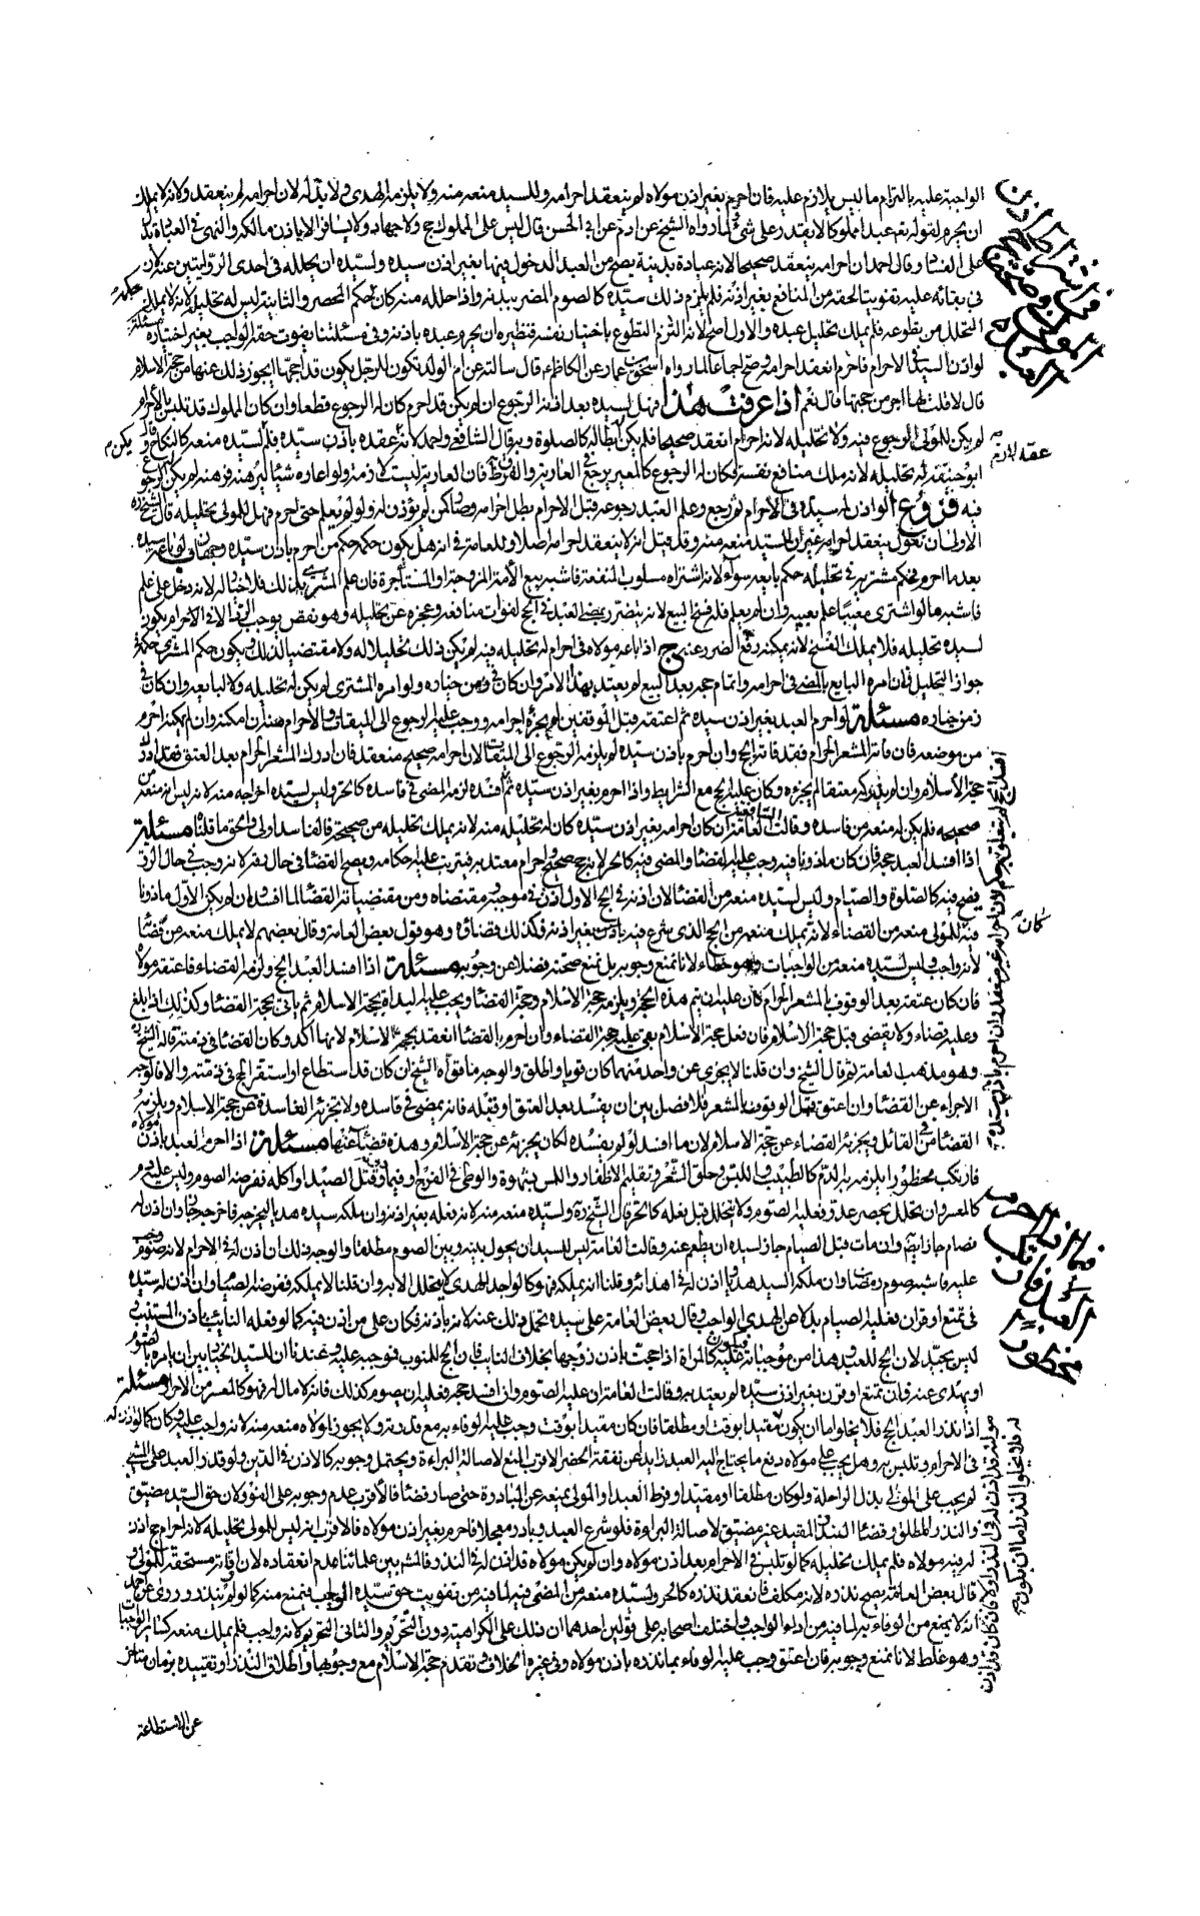 الواجبة عليه بالتزام ما ليس بلازم عليه فان احرم بغير اذن مولاه لم ينعقد احرامه وللسيد منعه منه ولا يلزمه الهدى ولا بدله لان احرامه لم ينعقد ولانه لا يملك
ان يحرم لقوله تعم عبدا مملوكا لا يقدر على شئ ولما رواه الشيخ عن ادم عن ابي الحسن قال ليس على المملوك حج ولا جهاد ولا يسافر الا باذن مالكه والنهى في العبادة يدل
على الفساد وقال احمد ان احرامه ينعقد صحيحا لانه عبادة بدنية يصح من العبد الدخول فيها بغير اذن سيده ولسيده ان يحلله في احدى الروايتين عنه لان
في بقائه عليه تفويتا لحقه من المنافع بغير اذنه فلم يلزم ذلك سيده كالصوم المضر ببدنه واذا حلله منه كان حكمه حكم المحصر والثانية ليس له تحليله لانه لا يملك
التحلل من تطوعه فلم يملك تحليل عبده والاول اصح لانه التزم التطوع باختيار نفسه فنظيره ان يحرم عبده باذنه وفي مسئلتنا يفوت حقه الواجب بغير اختياره مسئلة
لو اذن السيد في الاحرام فاحرم انعقد احرامه وصح اجماعا لما رواه اسحق بن عمار عن الكاظم ع قال سالته عن ام الولد تكون للرجل يكون قد احجها ايجوز ذلك عنها من حجة الاسلام
قال لا قلت لها اجر من حجتها قال نعم اذا عرفت هذا فهل لسيده بعد اذنه الرجوع ان لم يكن قد احرم كان له الرجوع قطعا وان كان المملوك قد تلبس بالاحرام
لم يكن للمولى الرجوع فيه ولا تحليله لانه احرام انعقد صحيحا فلم يكن ابطاله كالصلوة وبه قال الشافعي واحمد لانه عقده باذن سيده فلم يكن لسيده منعه كالنكاح وقال
ابو حنيفة له تحليله لانه ملك منافع نفسه فكان له الرجوع كالمعير يرجع في العارية والفرق فان العارية ليست لازمة ولو اعاره شيئا ليرهنه فرهنه لم يكن له الرجوع
فيه فروع ا لو اذن له سيده في الاحرام ثم رجع وعلم العبد رجوعه قبل الاحرام بطل احرامه وصار كمن لم يؤذن له ولو لم يعلم حتى احرم فهل للمولى تحليله قال الشيخ ره
الاولى ان نقول ينعقد احرامه غير ان للسيد منعه منه وقد قيل انه لا ينعقد احرامه اصلا وللعامة في انه هل يكون حكمه حكم من احرم باذن سيده وجهان ب لو باعه سيده
بعد ما احرم فحكم مشتريه في تحليله حكم بايعه سواء لانه اشتراه مسلوب المنفعة فاشبه بيع الامة المزوجة او المستأجرة فان علم المشترى بذلك فلا خيار له لانه دخل على علم
فاشبه ما لو اشترى معيبا علم بعيبه وان لم يعلم فله فسخ البيع لانه يتضرر بمضى العبد في الحج لفوات منافعه وعجزه عن تحليله وهو نقص يوجب الرد الا في الاحرام يكون
لسيده تحليله فلا يملك الفسخ لانه يمكنه رفع الضرر عنه ج اذا باعه مولاه في احرام له تحليله فيه لم يكن ذلك تحليلا له ولا مقتضيا لذلك ويكون حكم المشترى حكمه في
جواز التحليل فان امره البايع بالمضى في احرامه واتمام حجه بعد البيع لم يعتد بهذا الامر وان كان في زمن خياره ولو امره المشترى لم يكن له تحليله ولا للبايع وان كان في
زمن خياره مسئلة لو احرم العبد بغير اذن سيده ثم اعتقه قبل الموقفين لم يجزه احرامه ووجب عليه الرجوع الى الميقات والاحرام منه ان امكنه وان لم يمكنه احرم
من موضعه فان فاته المشعر الحرام فقد فاته الحج وان احرم باذن سيده لم يلزمه الرجوع الى الميقات لان احرامه صحيح منعقد فان ادرك المشعر الحرام بعد العتق فقد ادرك
حجة الاسلام وان لم يدركه معتقا لم يجزه وكان عليه الحج مع الشرايط واذا احرم بغير اذن سيده ثم افسده لزمه المضى في فاسده كالحر وليس لسيده اخراجه منه لانه ليس له منعه من
صحيحه فلم يكن له منعه من فاسده وقالت الشافعية ان كان احرامه بغير اذن سيده كان له تحليله منه لانه يملك تحليله من صحيحه فالفاسد اولى والحق ما قلنا مسئلة
اذا افسد العبد حجه فان كان ماذونا فيه وجب عليه القضاء والمضى فيه كالحر لانه حج صحيح واحرام معتد به فيترتب عليه احكامه ويصح القضاء في حال رقه لانه وجب في حال الرق
فيصح فيه كالصلوة والصيام وليس لسيده منعه من القضاء لان اذنه في الحج الاول اذن في موجبه ومقتضاه ومن مقتضياته القضاء لما افسده وان لم يكن الاول ماذونا
فيه للمولى منعه من القضاء لانه يملك منعه من الحج الذي شرع فيه بغير اذنه فكذلك قضاؤه وهو قول بعض العامة وقال بعضهم لا يملك منعه من قضائه
لانه واجب وليس لسيده منعه من الواجبات وهو خطاء لانا نمنع وجوبه بل نمنع صحته فضلا عن وجوبه مسئلة اذا افسد العبد الحج ولزمه القضاء فاعتقه مولاه
فان كان عتقه بعد الوقوف بالمشعر الحرام كان عليه ان يتم هذه الحجة ويلزمه حجة الاسلام وحجة القضاء ويجب عليه البداة بحجة الاسلام ثم ياتي بحجة القضاء وكذلك اذا بلغ
وعليه قضاء ولا يقضى قبل حجة الاسلام فان فعل حجة الاسلام بقى عليه حجة القضاء وان احرم بالقضاء انعقد بحجة الاسلام لانها آكد وكان القضاء في ذمته قاله الشيخ ره
وهو مذهب العامة ثم قال الشيخ وان قلنا لا يجزى عن واحدة منهما كان قويا واطلق والوجه موافقة الشيخ ان كان قد استطاع او استقر الحج في ذمته والا فالوجه
الاجزاء عن القضاء وان اعتق قبل الوقوف بالمشعر فلا فصل بين ان يفسد بعد العتق او قبله فانه يمضى في فاسده ولا تجزئه الفاسدة عن حجة الاسلام ويلزمه
القضاء من القابل ويجزئه القضاء عن حجة الاسلام لان ما افسده لو لم يفسده لكان يجزئه عن حجة الاسلام وهذه قضاء عنها مسئلة اذا احرم العبد باذن مولاه
فارتكب محظورا يلزمه به الدم كالطيب واللبس وحلق الشعر وتقليم الاظفار واللمس بشهوة والوطى في الفرج او فيما دونه وقتل الصيد او اكله ففرضه الصوم وليس عليه دم
كالمعسر وان تحلل بحصر عدو فعليه الصوم ولا يتحلل قبل فعله كالحر قال الشيخ ره ولسيده منعه منه لانه فعله بغير اذنه وان ملكه سيده هديا ليخرجه فاخرجه جاز وان اذن له
فصام جاز ايضا وان مات قبل الصيام جاز لسيده ان يطعم عنه وقالت العامة ليس للسيد ان يحول بينه وبين الصوم مطلقا والوجه ذلك ان اذن له في الاحرام لانه صوم وجب
عليه فاشبه صوم رمضان وان ملكه السيد هديا واذن له في اهدائه وقلنا انه يملكه فهو كالواجد للهدى لا يتحلل الا به وان قلنا لا يملكه ففرضه الصيام وان اذن له سيده
في تمتع او قران فعليه الصيام بدلا عن الهدى الواجب وقال بعض العامة على سيده تحمل ذلك عنه لانه باذنه فكان على من اذن فيه كما لو فعله النائب باذن المستنيب
ليس بجيد لان الحج للعبد وهذا من موجباته فيكون عليه كالمراة اذا حجت باذن زوجها بخلاف النايب فان الحج للمنوب فموجبه عليه وعندنا ان للسيد الخيار بين ان يامره بالصوم
او يهدى عنه فان تمتع او قرن بغير اذن سيده لم يعتد به وقالت العامة ان عليه الصوم وان افسد حجه فعليه ان يصوم كذلك فانه لا مال له فهو كالمعسر من الاحرار مسئلة
اذا نذر العبد الحج فلا يخلو اما ان يكون مقيدا بوقت او مطلقا فان كان مقيدا بوقت وجب عليه الوفاء به مع قدرته ولا يجوز لمولاه منعه منه لانه وجب عليه فكان كما لو اذن له
في الاحرام وتلبس به وهل يجب على مولاه دفع ما يحتاج اليه العبد زايدا عن نفقة الحضر الاقرب المنع لاصالة البراءة ويحتمل وجوبه كالاذن في الدين ولو قدر العبد على المشى
لم يجب على المولى بذل الراحلة ولو كان مطلقا او مقيدا وفرط العبد او المولى بمنعه عن المبادرة حتى صار قضاء فالاقرب عدم وجوبه على الفور لان حق السيد مضيق
والنذر المطلق وقضاء النذر المقيد غير مضيق لاصالة البراءة فلو شرع العبد وبادر معجلا فاحرم بغير اذن مولاه فالاقرب انه ليس للمولى تحليله لانه احرام حج اذن
له فيه مولاه فلم يملك تحليله كما لو تلبس في الاحرام بعد اذن مولاه وان لم يكن مولاه قد اذن له في النذر فالمشهور بين علمائنا عدم انعقاده لان اوقاته مستحقة للمولى
وقال بعض العامة يصح نذره لانه مكلف فانعقد نذره كالحر ولسيده منعه من المضى فيه لما فيه من تفويت حق سيده الواجب فيمنع منه كما لو لم ينذر وروى عن احمد
انه لا يمنع من الوفاء به لما فيه من اداء الواجب واختلف اصحابه على قولين احدهما ان ذلك على الكراهية دون التحريم والثاني التحريم لانه واجب فلم يملك منعه كسائر الواجبات
وهو غلط لانا نمنع وجوبه فان اعتق وجب عليه الوفاء بما نذره باذن مولاه وفي غيره الخلاف وتقدم حجة الاسلام مع وجوبها واطلاق النذر او تقييده بزمان متاخر
عن الاستطاعة